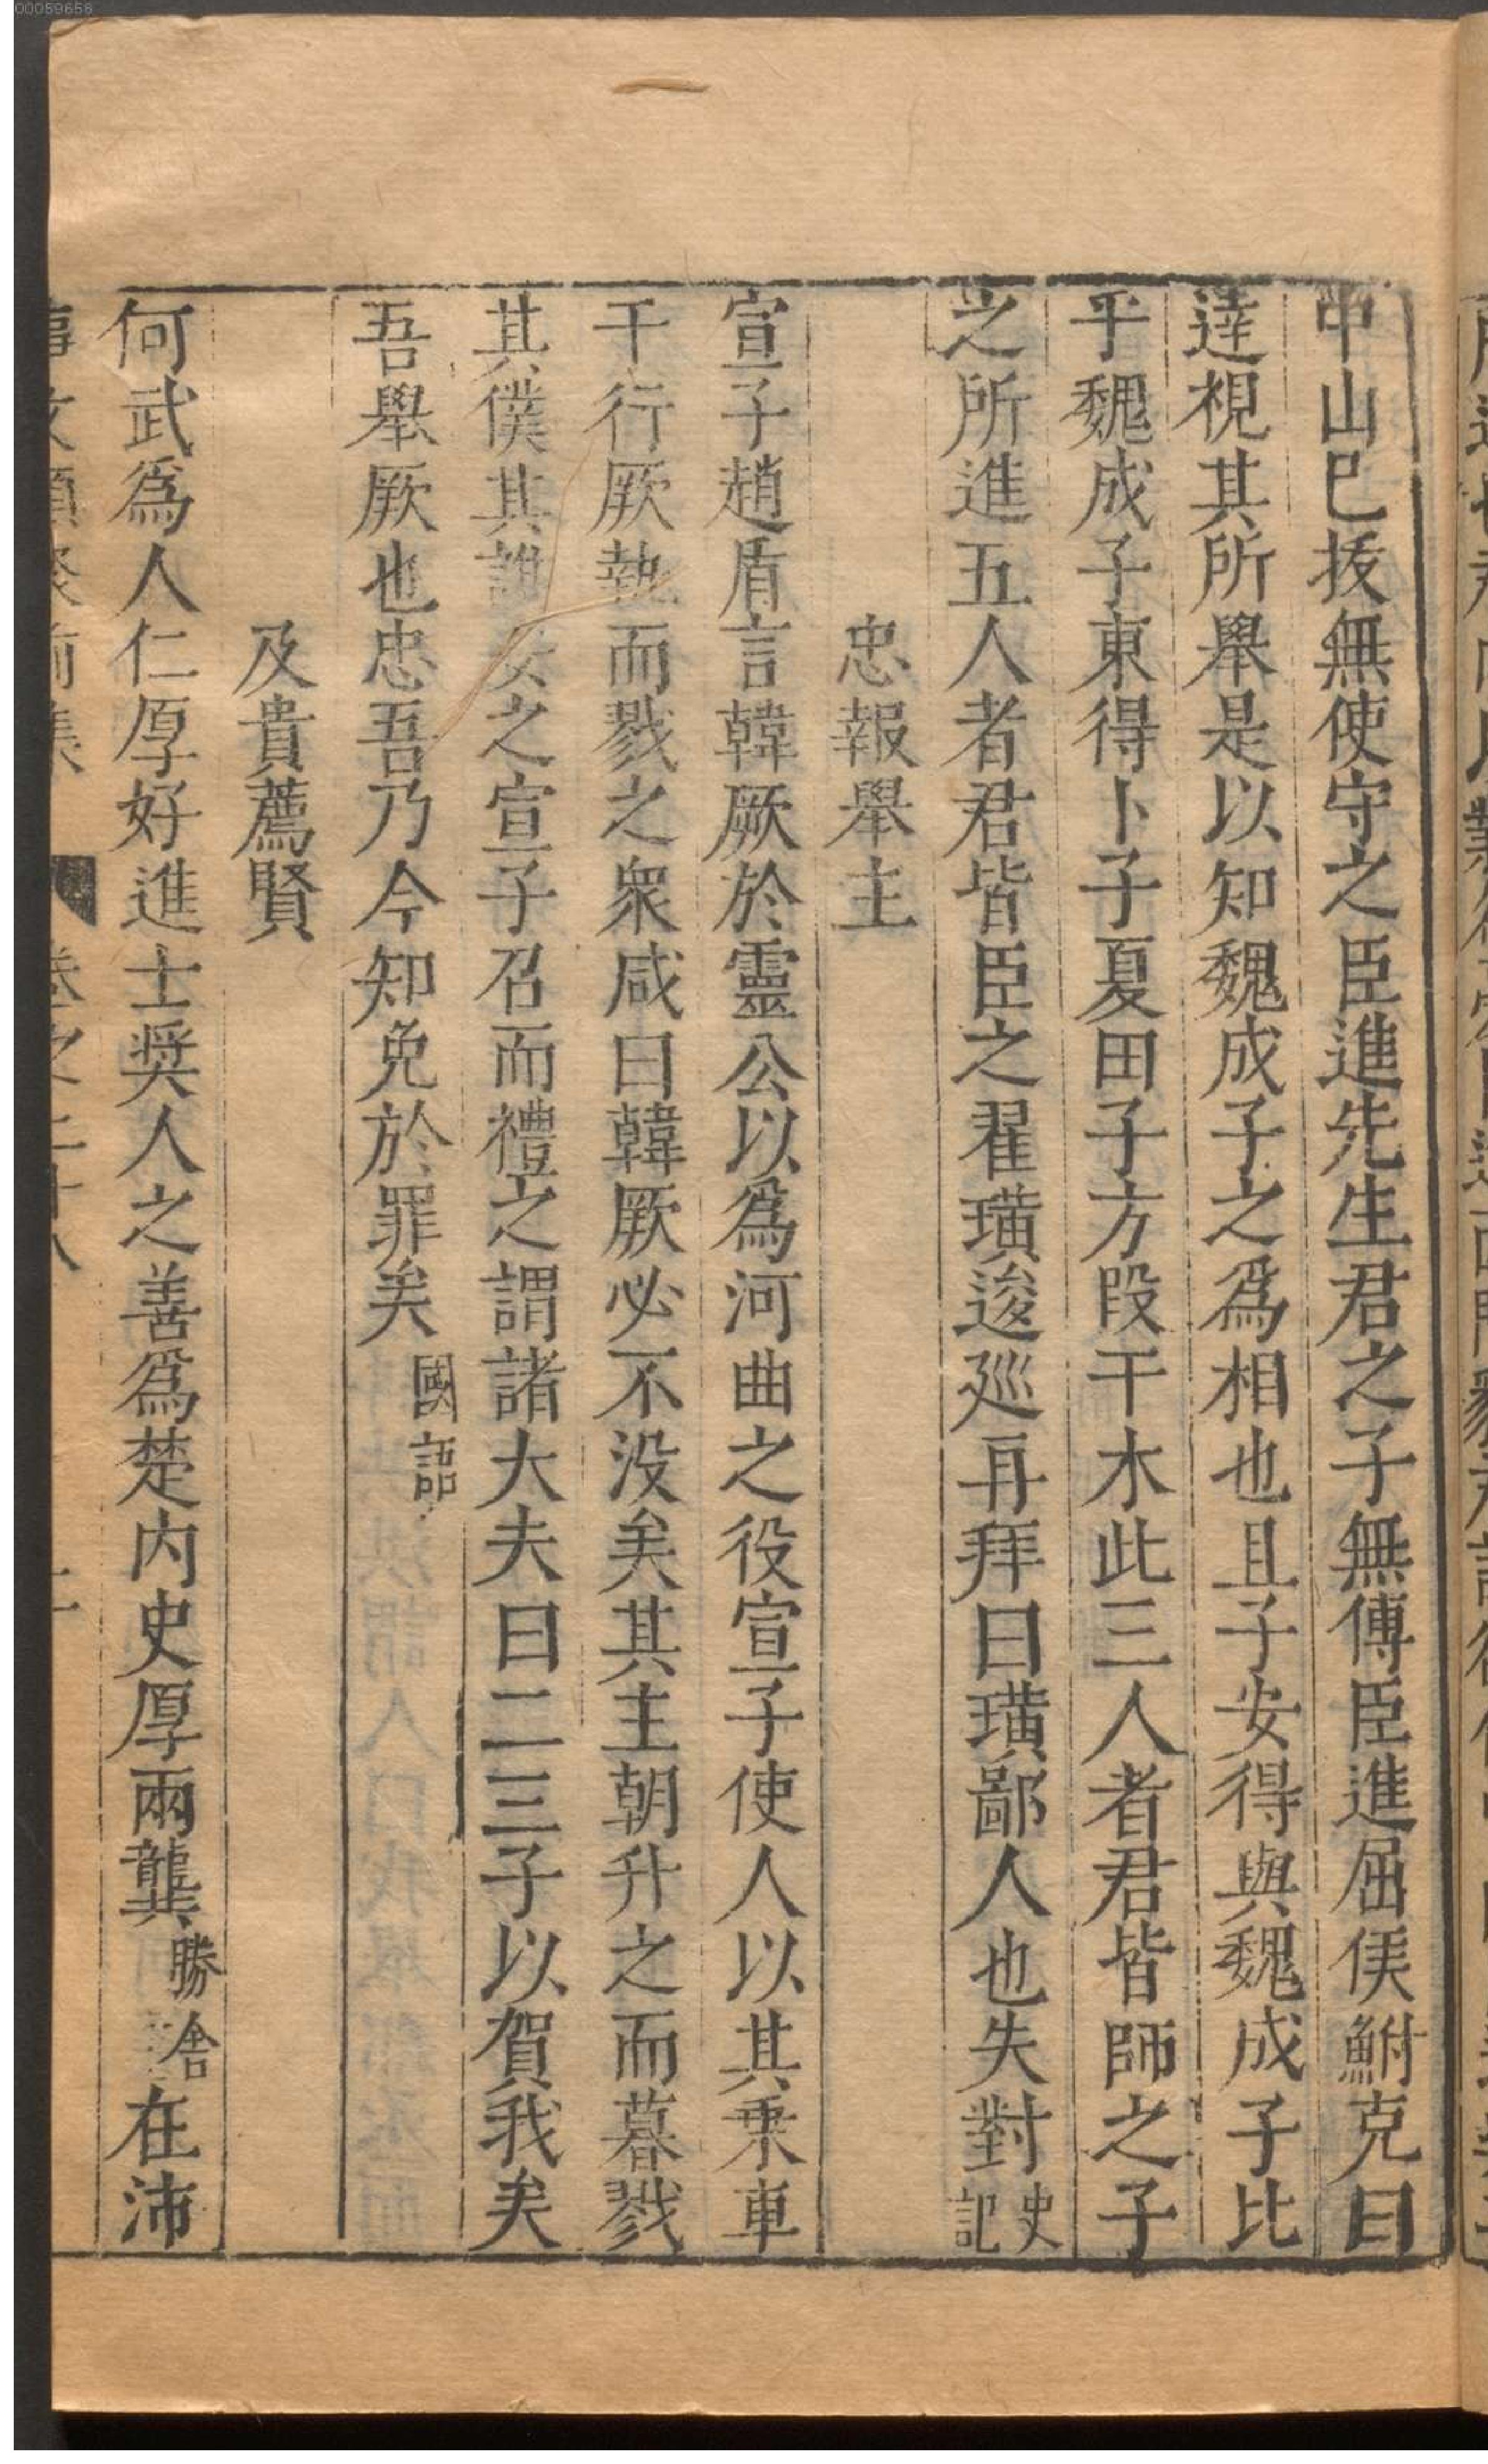 00059658
中山已拔無使守之臣進先生君之子無傅臣進屈侯鮒克曰
達視其所舉是以知魏成子之爲相也且子安得與魏成子比
乎魏成子東得卜子夏田子方段干木此三人者君皆師之子
之所進五人者君皆臣之翟璜逡廵再拜曰璜鄙人也失對史記
忠報舉主
宣子趙盾言韓厥於靈公以爲河曲之役宣子使人以其乗車
干行厥執而戮之衆咸曰韓厥必不没矣其主朝升之而暮戮
其僕其誰安之宣子召而禮之謂諸大夫曰二三子以賀我矣
吾舉厥也忠吾乃今知免於罪矣國語
及貴薦賢
何武爲人仁厚好進士奨人之善爲楚内史厚兩龔勝舍在沛